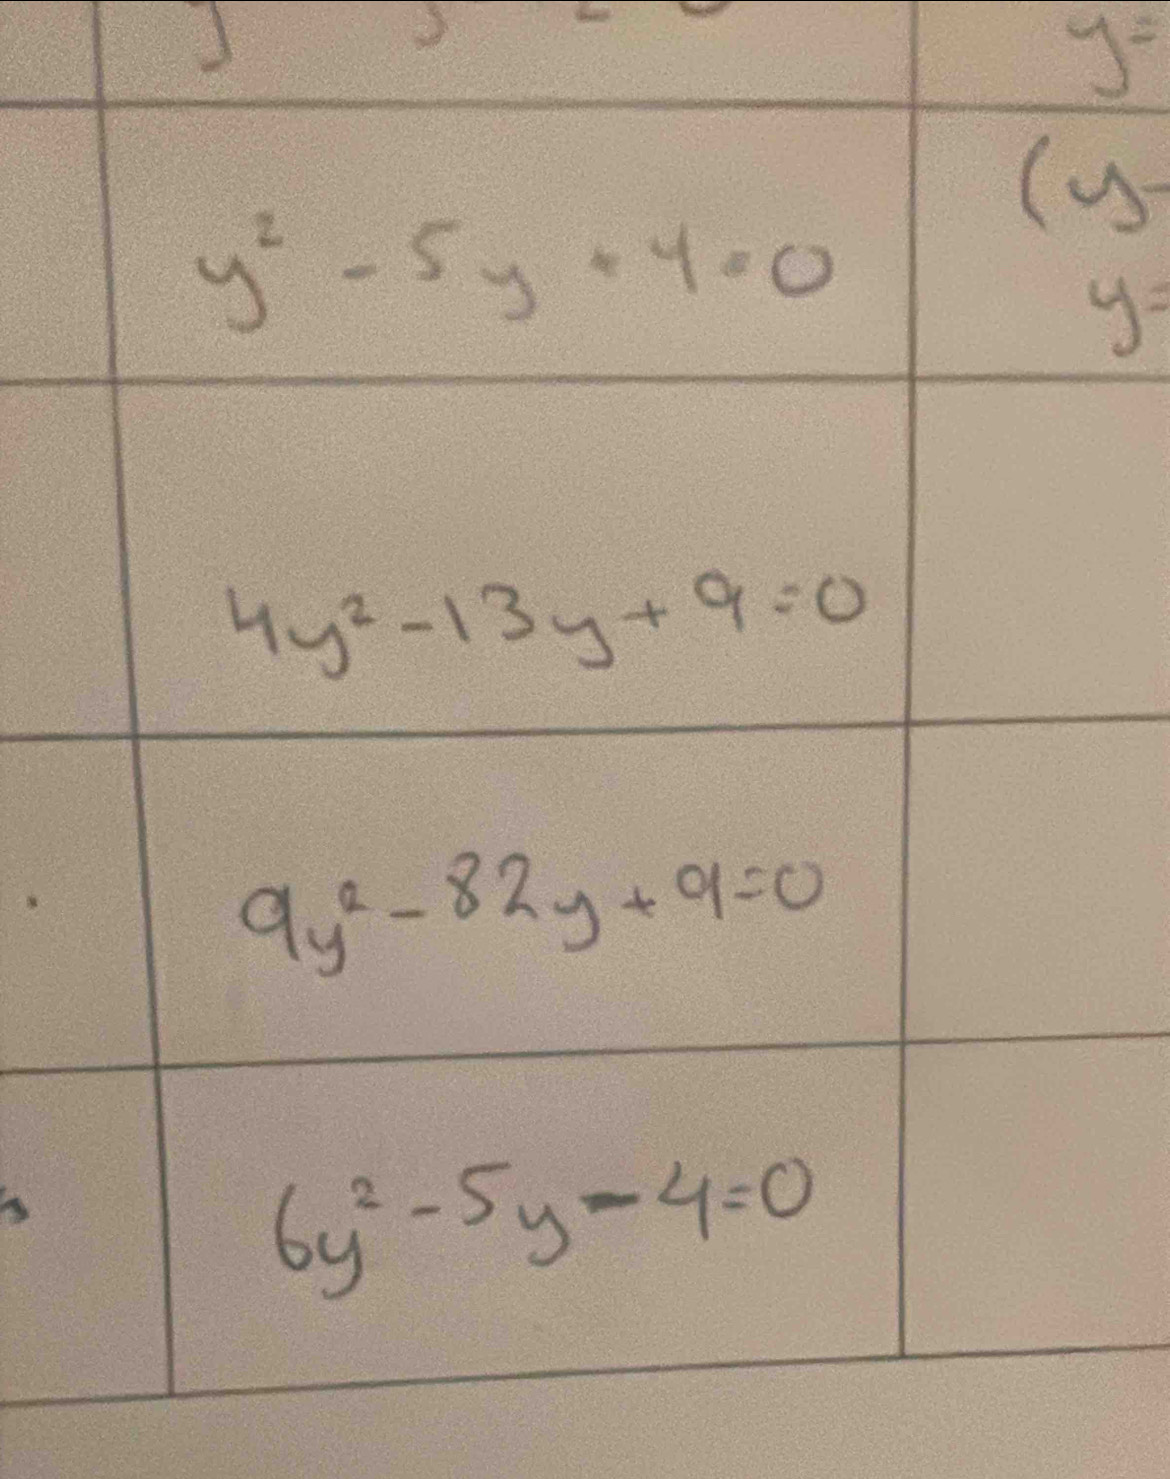 y=
(y-
y² - 5y + 4 = 0
y=
4y² - 13y + 9 = 0
9y² - 82y + 9 = 0
6y² - 5y - 4 = 0